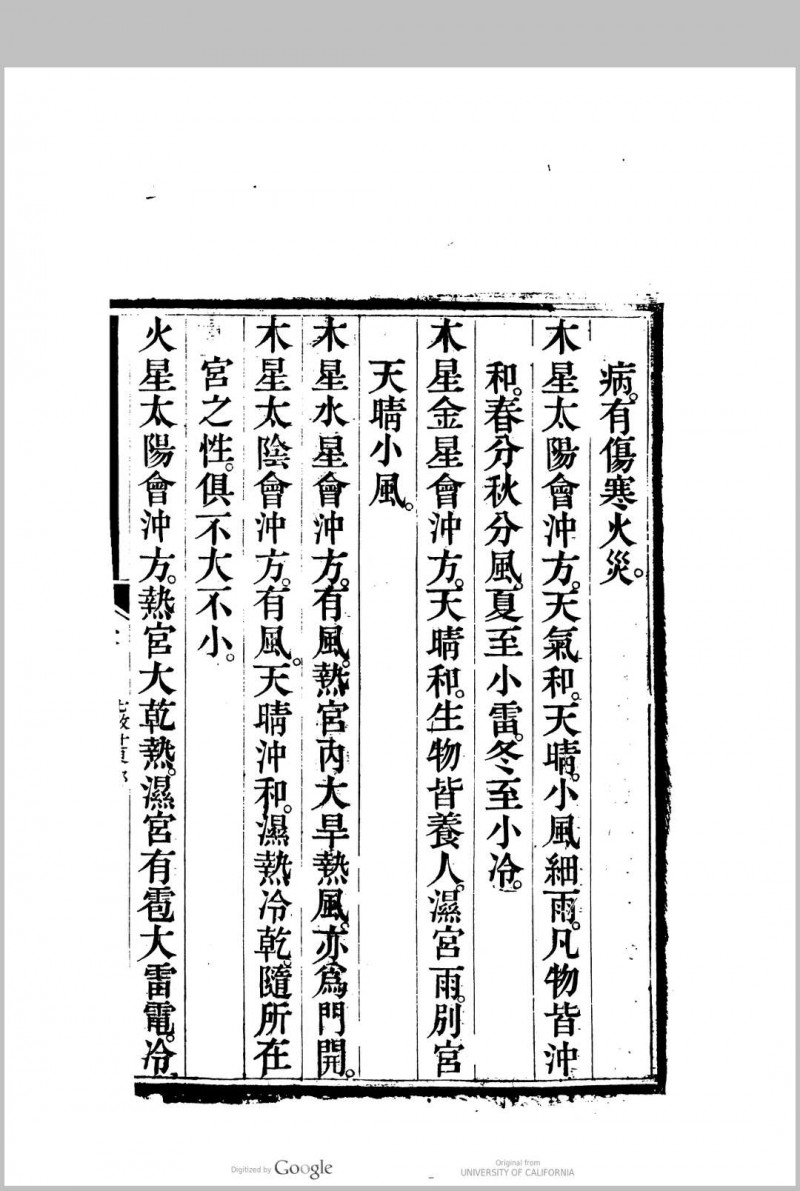 病。有傷寒火災。
木星太陽會沖方。天氣和。天晴。小風細雨。凡物皆沖
和。春分秋分風。夏至小雷。冬至小冷。
木星金星會沖方。天晴和。生物皆養人。濕宮雨。別宮
天晴小風。
木星水星會沖方。有風。熱宮內大旱熱風。亦爲門開。
木星太陰會沖方。有風。天晴沖和。濕熱冷乾。隨所在
宮之性。俱不大不小。
火星太陽會沖方。熱宮大乾熱。濕宮有雹大雷電。冷
Digitized by Google
Original from
UNIVERSITY OF CALIFORNIA